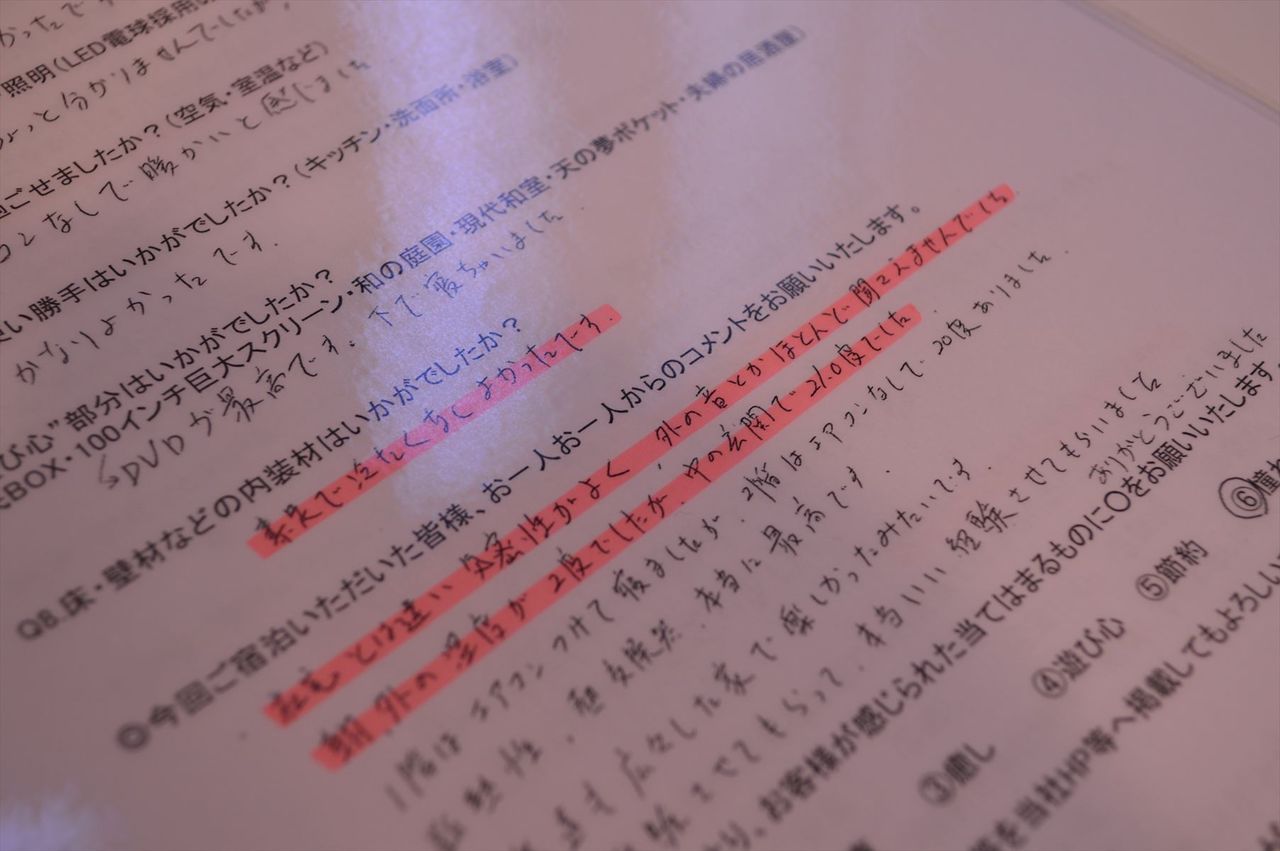 かったです
照明(LED電球採用
ちょっと分かりませんでしたが
ごせましたか？(空気・室温など)
コンなしで暖かいと感じました
い勝手はいかがでしたか？(キッチン・洗面所・浴室)
かなりよかったです.
び心”部分はいかがでしたか？
BOX・100インチ巨大スクリーン・和の庭園・現代和室・天の夢ポケット・夫婦の居酒屋)
DVDが最高です。下で寝ちゃいました.
Q8.床・壁材などの内装材はいかがでしたか？
冷たくなくよかったです.
◎今回ご宿泊いただいた皆様、お一人お一人からのコメントをお願いいたします。
とは違い 気密性がよく、外の音とかほとんど聞こえませんでした
朝 外の温度が 2度でしたが、中の玄関で 21.0度でした
1階は エアコンつけて 寝ましたが、2階はエアコンなしで、20度ありました.
断熱性、熱交換器、本当に最高です.
広々した家で 楽しかったみたいです.
させてもらって、本当いい 経験させてもらいました
ありがとうございました
り。お客様が感じられた当てはまるものに〇をお願いいたします。
③癒し ④遊び心 ⑤節約 ⑥憧れ
を当社HP等へ掲載してもよろしい